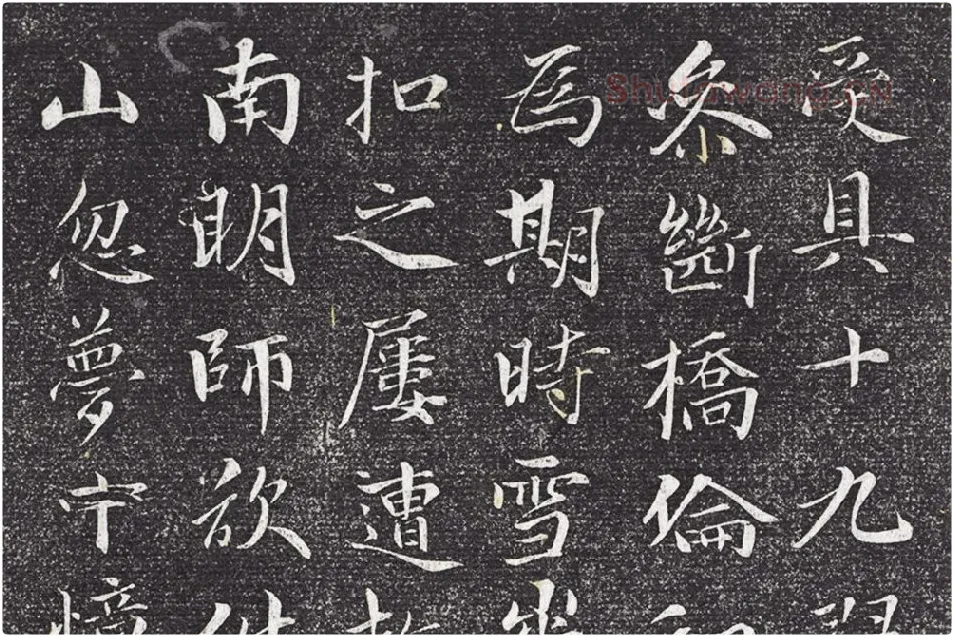 受具十九
參斷橋倫
為期時雪
扣之屢遭
南明師欲
山忽夢中
Shufawang.CN